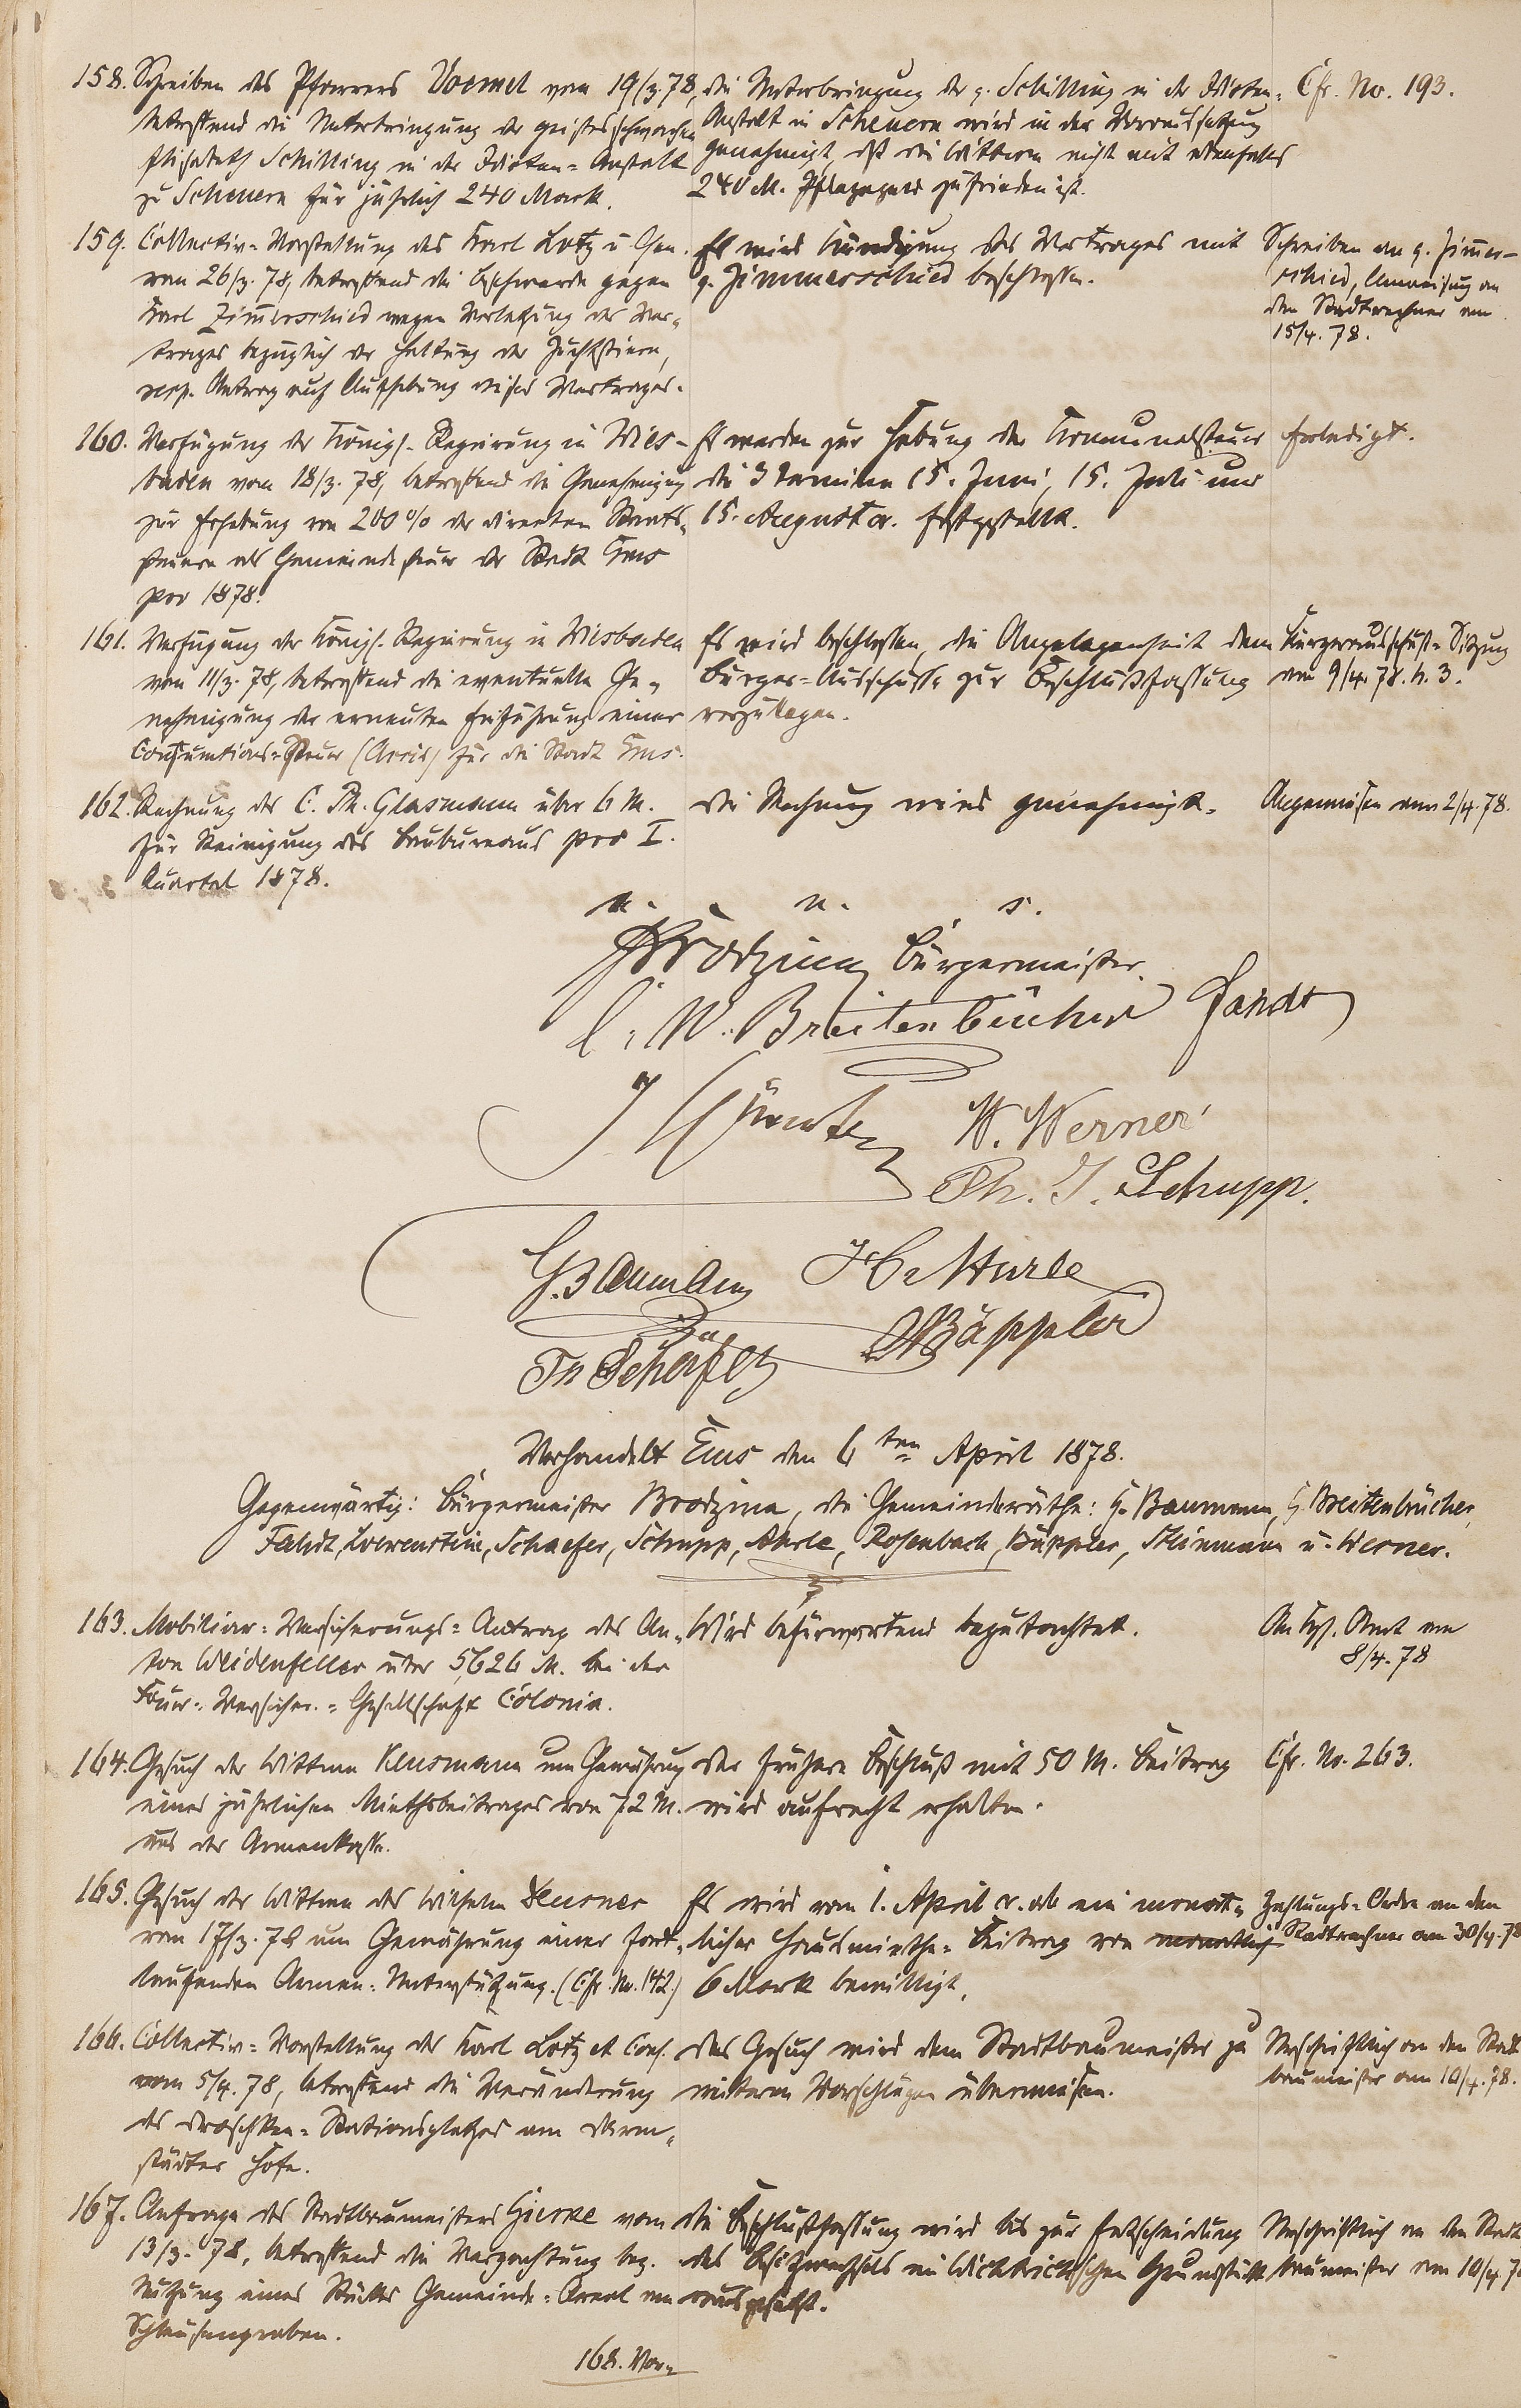 158. Schreiben des Pfarrers Voemel vom 19/3. 78,
betreffend die Unterbringung der geistesschwachen
Elisabeth Schilling in der Idioten=Anstalt
zu Scheuern für jährlich 240 Mark.
Die Unterbringung der g. Schilling in der Idioten=
Anstalt in Scheuern wird in der Voraussetzung
genehmigt, daß die nicht mit ebenfalls
240 M. Pflegegeld zufrieden ist.
Cfr. No. 193.
159. Collectiv=Vorstellung des Karl Lotz u. Gen.
vom 26/3. 78, betreffend die Beschwerde gegen
Karl Zimmerschied wegen Verletzung des Ver=
trages bezüglich der Haltung der Zuchtstiere,
resp. Antrag auf Aufhebung dieses Vertrages.
Es wird Kündigung des Vertrages mit
g. Zimmerschied beschlossen.
Schreiben an g. Zimmer=
schied, Anweisung an
den Stadtrechner am
15/4. 78.
160. Verfügung der Königl. Regierung in Wies=
baden vom 18/3. 78, betreffend die Genehmigung
zur Erhebung von 200 % der directen Staats=
steuern als Gemeindesteuer der Stadt Ems
pro 1878.
Es werden zur Hebung der Kommunalsteuer
die 3 Termine 15. Juni, 15. Juli und
15. August cr. festgestellt.
Erledigt.
161. Verfügung der Königl. Regierung in Wiesbaden
vom 11/3. 78, betreffend die eventuelle Ge=
nehmigung der erneuten Einführung einer
Consumtions=Steuer (Accis) für die Stadt Ems.
Es wird beschlossen, die Angelegenheit dem
Bürger=Ausschusse zur Beschlußfassung
vorzulegen.
Bürgerausschuß=Sitzung
am 9/4. 78. h. 3.
162. Rechnung des C. Ph. Glasmann über 6 M.
für Reinigung des Baubureaus pro I.
Quartal 1878.
Die Rechnung wird genehmigt.
Angewiesen am 2/4. 78.
v. u. s.
Brodzina Bürgermeister.
C. W. Breitenbücher Fahdt
W. Werner
Ph. J. Schupp.
G. Baumann H. Ahrle
Th Schäfer Bäppler
Verhandelt Ems den 6ten April 1878.
Gegenwärtig: Bürgermeister Brodzina, die Gemeinderäthe: H. Baumann, G. Breitenbücher,
Fahdt, Loewenstein, Schaefer, Schupp, Ahrle, Rosenbach, Bäppler, Steinmann u. Werner.
163. Mobiliar=Versicherungs=Antrag des An=
ton Weidenfeller über 5,626 M. bei der
Feuer=Versicher.=Gesellschaft Colonia.
Wird befürwortend begutachtet.
An Kgl. Amt am
8/4. 78
164. Gesuch der Wittwe Klusmann um Gewährung
eines jährlichen Miethsbeitrages von 72 M.
aus der Armenkasse.
Der frühere Beschluß mit 50 M. Beitrag
wird aufrecht erhalten.
Cfr. No. 263.
165. Gesuch der Wittwe des Wilhelm Deusner
vom 17/3. 78 um Gewährung einer fort=
laufenden Armen=Unterstützung. (Cfr. No. 142.)
Es wird vom 1. April cr. ab ein monat=
licher Hausmiethe=Beitrag von monatlich
6 Mark bewilligt.
Zahlungs=Ordre an den
Stadtrechner am 30/4. 78
166. Collectiv=Vorstellung des Karl Lotz et Cons.
vom 5/4. 78, betreffend die Veränderung
des Droschken=Stationsplatzes am Darm=
städter Hofe.
Das Gesuch wird dem Stadtbaumeister zu
weiteren Vorschlägen überwiesen.
Urschriftlich an den Stadt
baumeister am 10/4. 78.
167. Anfrage des Stadtbaumeisters Gierke vom
13/3. 78, betreffend die Verpachtung bez.
Nutzung eines Stückes Gemeinde=Areal am
Schleusengraben.
Die Beschlußfassung wird bis zur Entscheidung
des Besitzwechsels im Grundstücke
ausgesetzt.
Urschriftlich an den Stadt
baumeister am 10/4. 7
168. Ver=